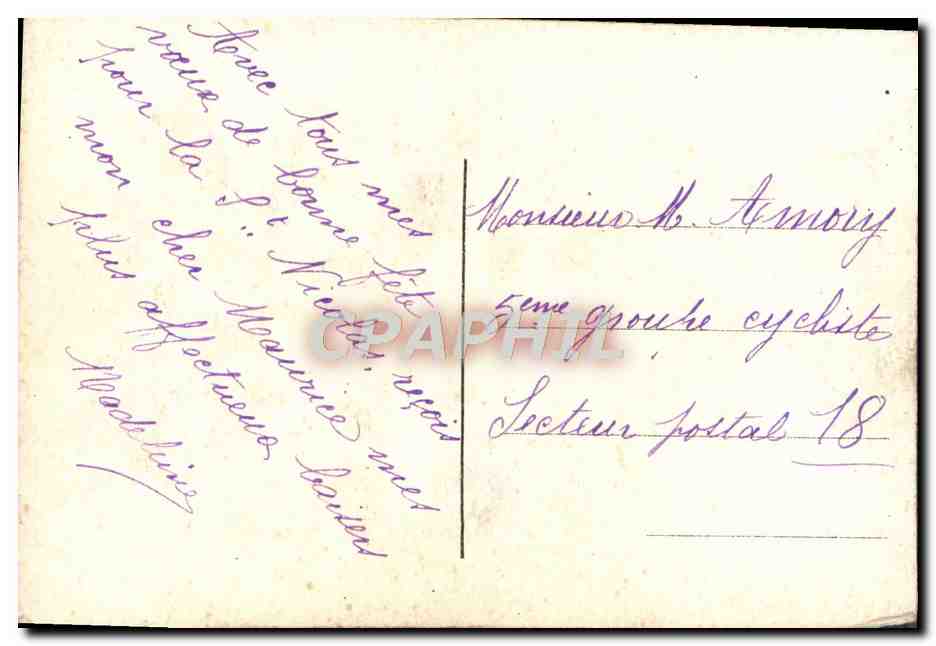 Avec tous mes
vœux de bonne fête
pour la St Nicolas, reçois
mon cher Maurice mes
plus affectueux baisers
Madeleine
Monsieur M. Amory
5ème groupe cycliste
Secteur postal 18
CPAPHIL